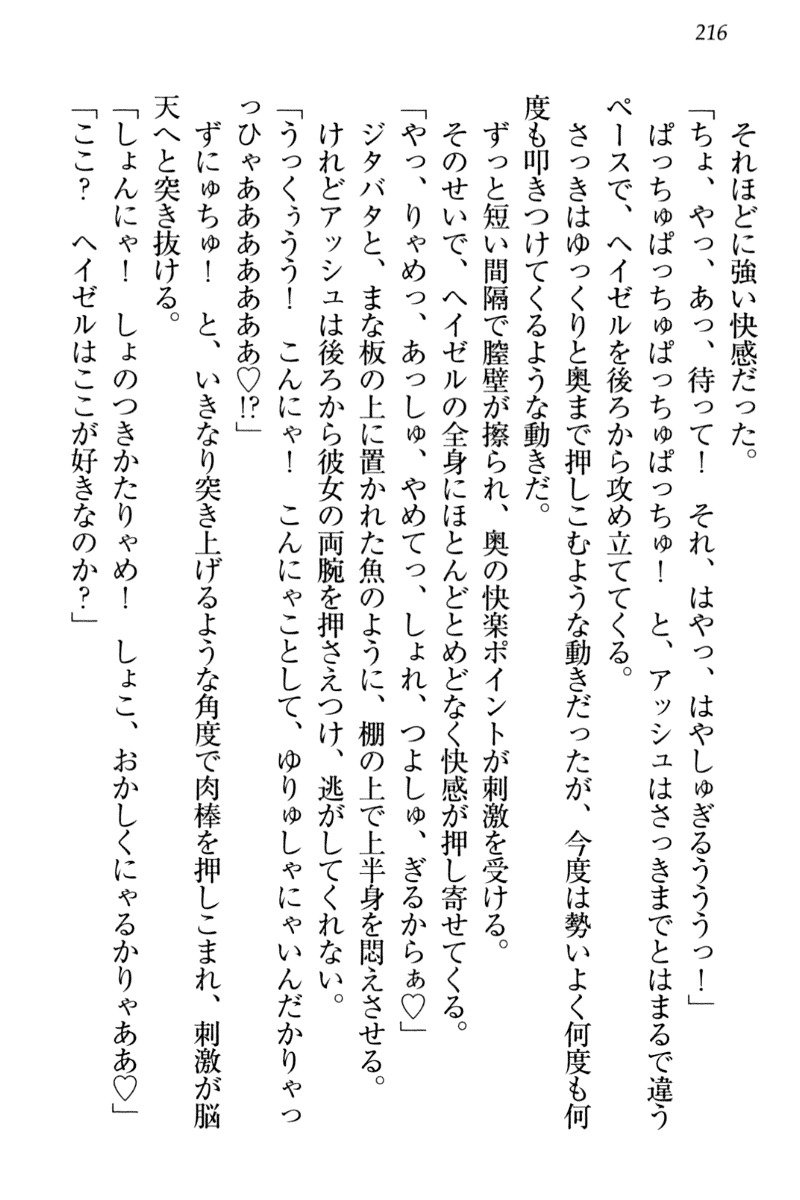 216
それほどに強い快感だった。
「ちょ、やっ、あっ、待って！　それ、はやっ、はやしゅぎるうううっ！」
ぱっちゅぱっちゅぱっちゅぱっちゅ！　と、アッシュはさっきまでとはまるで違う
ペースで、ヘイゼルを後ろから攻め立ててくる。
さっきはゆっくりと奥まで押しこむような動きだったが、今度は勢いよく何度も何
度も叩きつけてくるような動きだ。
ずっと短い間隔で膣壁が擦られ、奥の快楽ポイントが刺激を受ける。
そのせいで、ヘイゼルの全身にほとんどとめどなく快感が押し寄せてくる。
「やっ、りゃめっ、あっしゅ、やめてっ、しょれ、つよしゅ、ぎるからぁ♡」
ジタバタと、まな板の上に置かれた魚のように、棚の上で上半身を悶えさせる。
けれどアッシュは後ろから彼女の両腕を押さえつけ、逃がしてくれない。
「うっくぅうう！　こんにゃ！　こんにゃことして、ゆりゅしゃにゃいんだかりゃっ
っひゃあああああああ♡!?」
ずにゅちゅ！　と、いきなり突き上げるような角度で肉棒を押しこまれ、刺激が脳
天へと突き抜ける。
「しょんにゃ！　しょのつきかたりゃめ！　しょこ、おかしくにゃるかりゃああ♡」
「ここ？　ヘイゼルはここが好きなのか？」